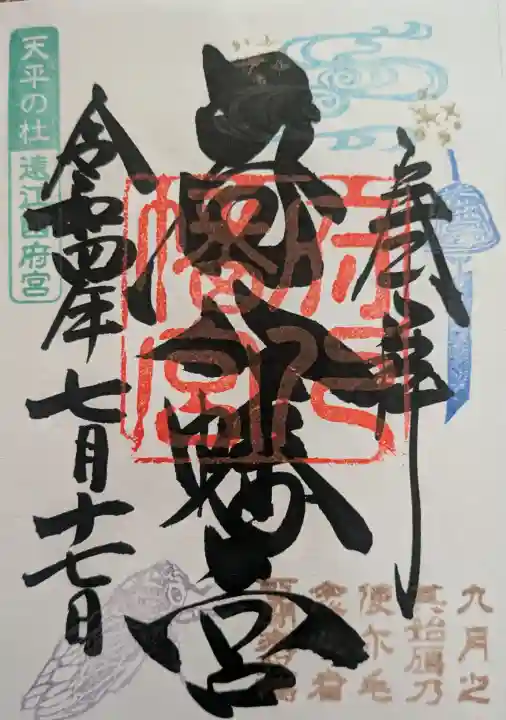 奉拝
府八幡宮
令和四年七月十七日
天平の杜
遠江国府宮
府八
幡宮
九月之
其始鴈乃
使尓毛